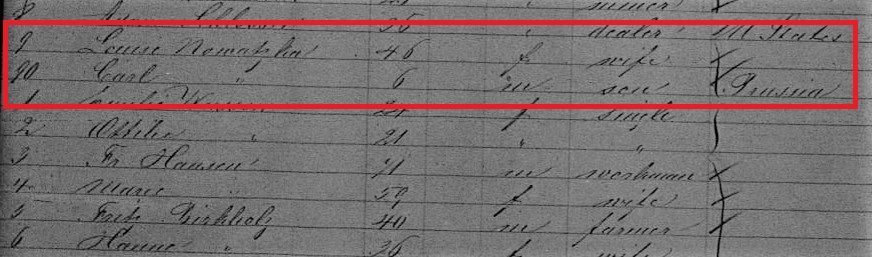 8 35 " dealer U States
9 Louise Nowatzka 46 f wife
90 Carl " 6 m son Prussia
1 24 f single
2 Ottilie " 21 " "
3 Fr. Hansen 71 m workman
4 Marie " 59 f wife
5 Fritz Birkholz 40 m farmer
6 Hanne " 36 f wife